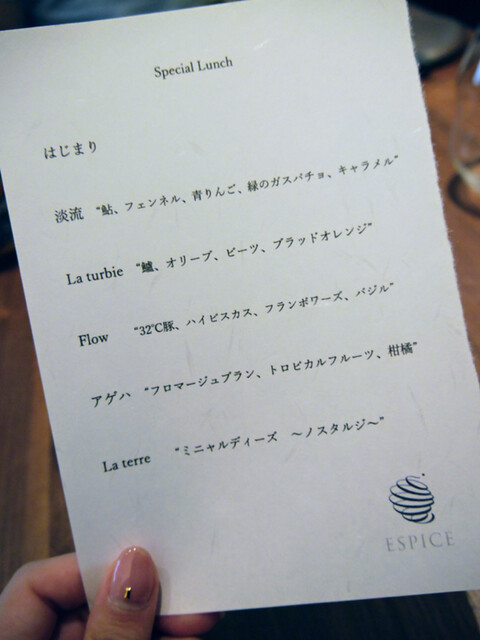 Special Lunch
はじまり
淡流 “鮎、フェンネル、青りんご、緑のガスパチョ、キャラメル”
La turbie “鱸、オリーブ、ビーツ、ブラッドオレンジ”
Flow “32℃豚、ハイビスカス、フランボワーズ、バジル”
アゲハ “フロマージュブラン、トロピカルフルーツ、柑橘”
La terre “ミニャルディーズ ～ノスタルジ～”
ESPICE